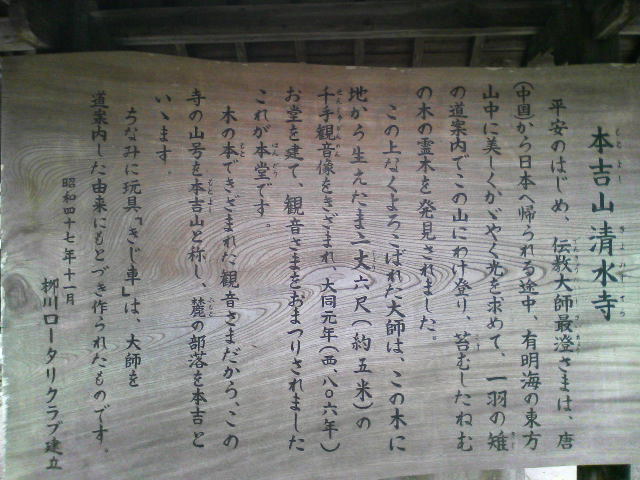 本吉山清水寺
平安のはじめ、伝教大師最澄さまは、唐
(中国)から日本へ帰られる途中、有明海の東方
山中に美しくかゞやく光を求めて、一羽の雉
の道案内でこの山にわけ登り、苔むしたねむ
の木の霊木を発見されました。
この上なくよろこばれた大師は、この木に
地から生えたまゝ一丈六尺(約五米)の
千手観音像をきざまれ、大同元年(西、八〇六年)
お堂を建て、観音さまをおまつりされました
これが本堂です。
木の本できざまれた観音さまだから、この
寺の山号を本吉山と称し、麓の部落を本吉と
いゝます。
ちなみに玩具「きじ車」は、大師を
道案内した由来にもとづき作られたものです。
昭和四十七年十一月
柳川ロータリクラブ建立